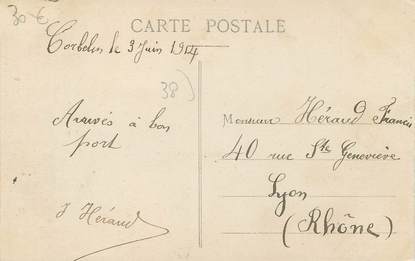 30 €
CARTE POSTALE
Corbelin le 3 Juin 1914
38)
Arrivés à bon
port
J Héraud
Monsieur Héraud Francis
40 rue Ste Geneviève
Lyon
(Rhône)